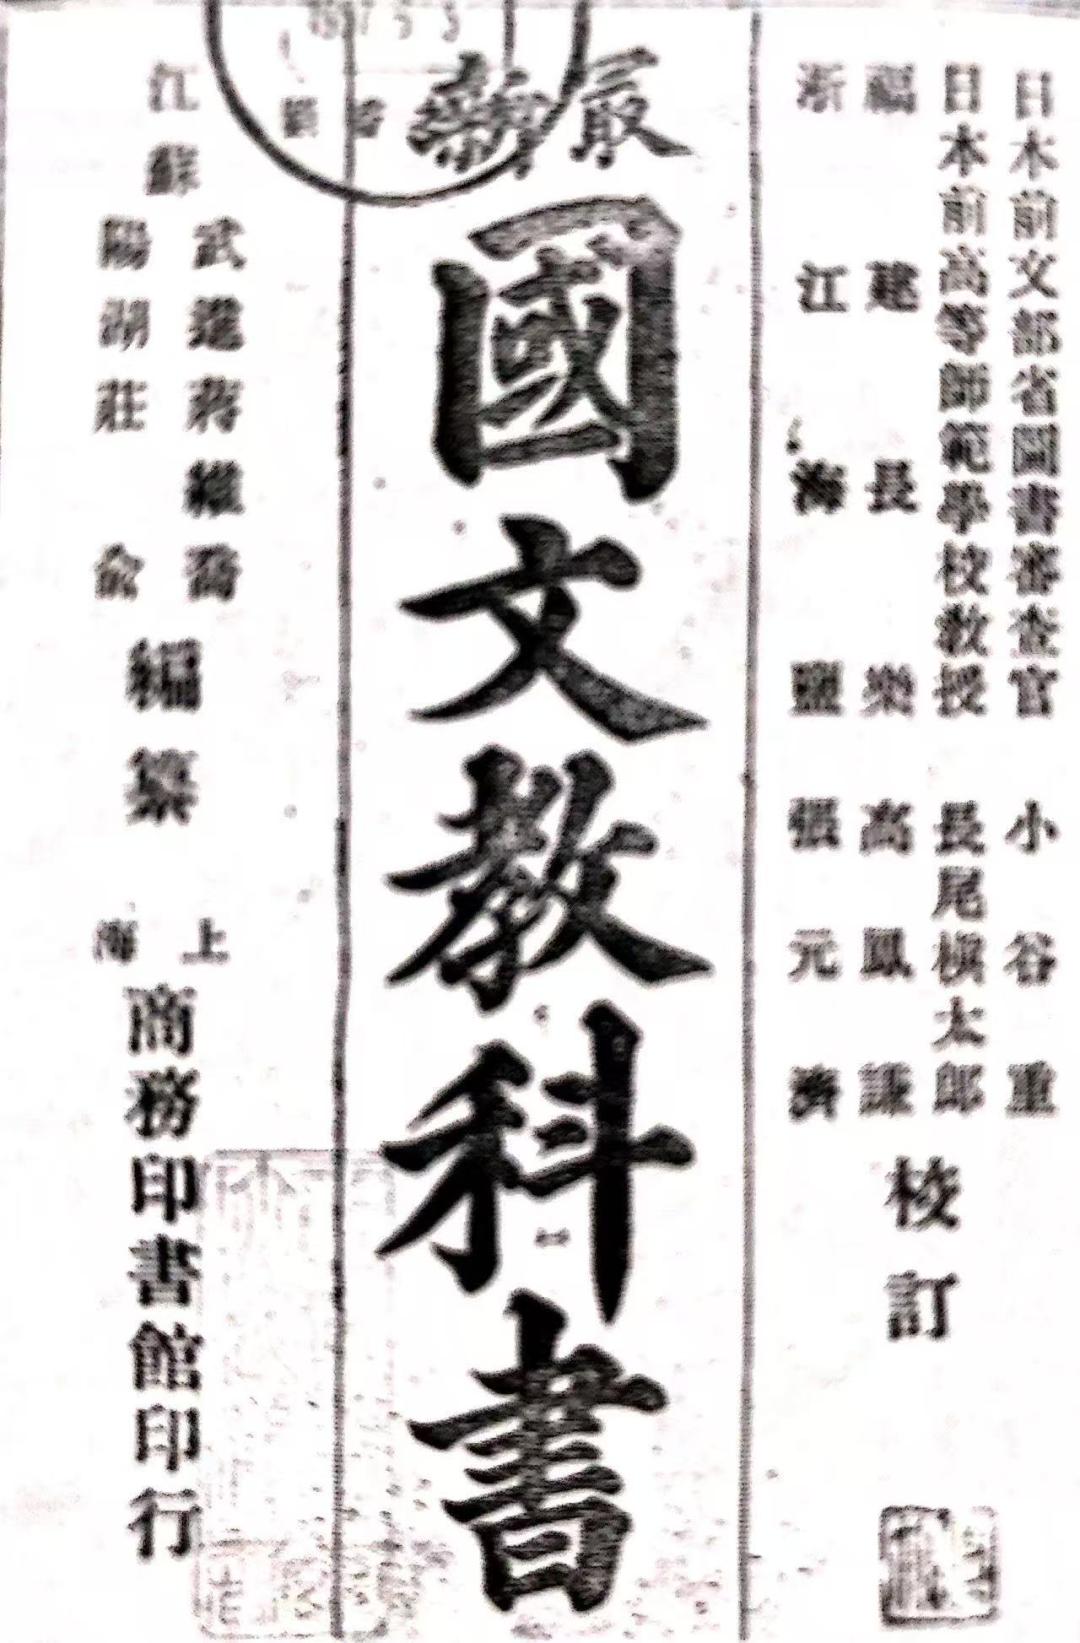 日本前文部省圖書審查官 小谷重
日本前高等師範學校敎授 長尾槇太郎
福建長樂 高鳳謙
浙江海鹽 張元濟
校訂
最新
國文教科書
江蘇
武進蔣維喬
陽湖莊俞
編纂
上海
商務印書館印行